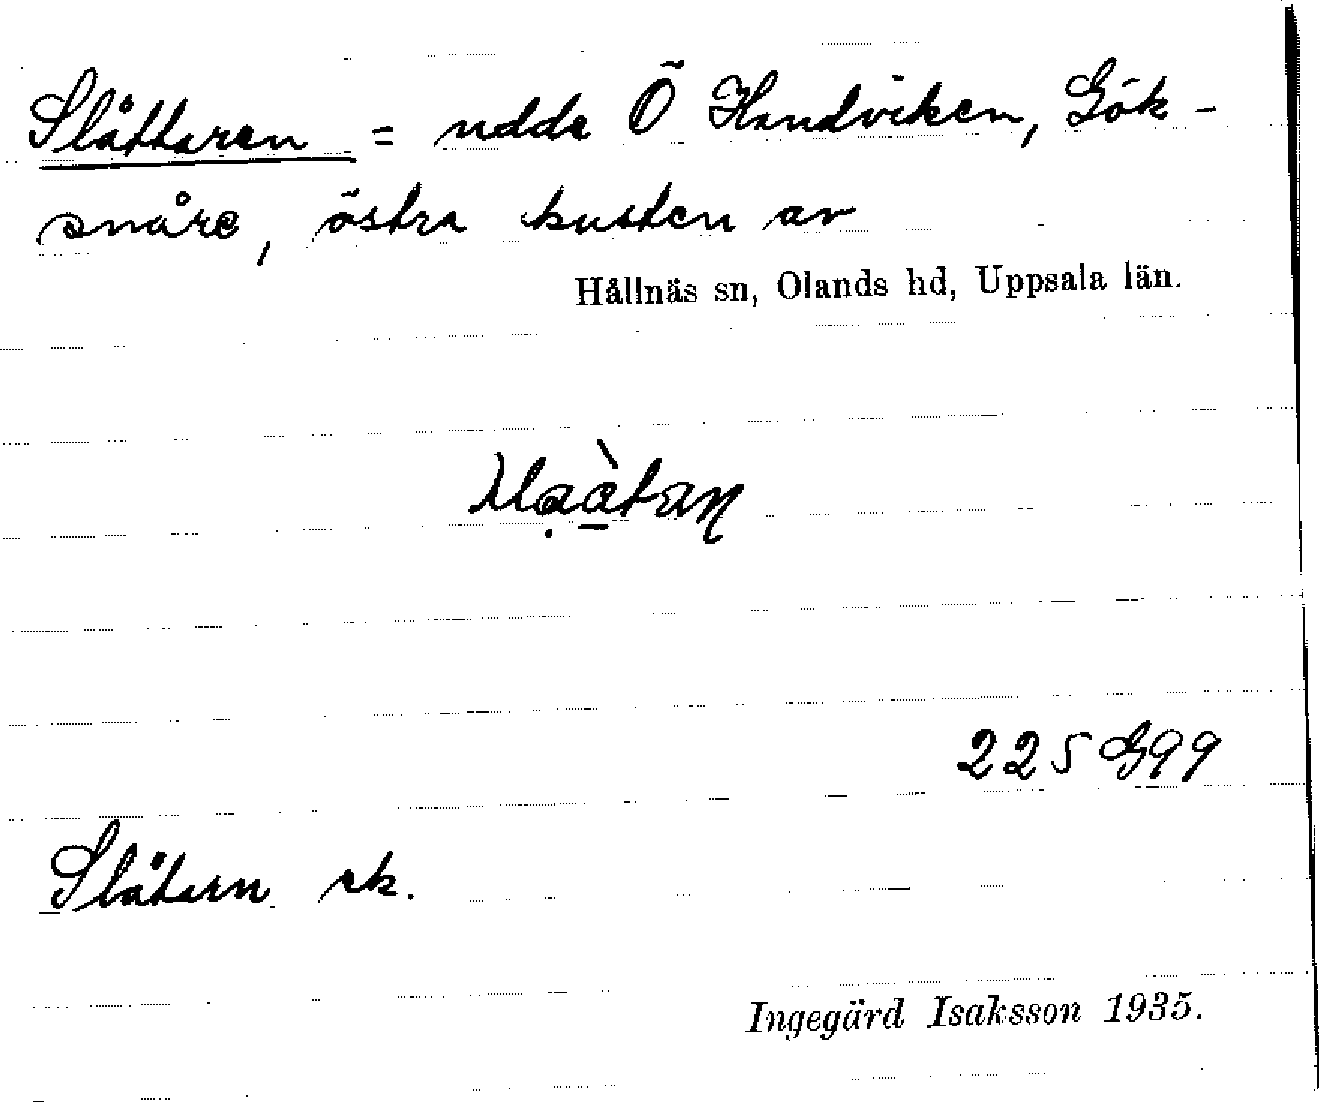 Slåttaren = udde Ö Handviken, Gök-
snåre, östra kusten av
Hållnäs sn, Olands hd, Uppsala län.
225 G99
Slåtarn ek.
Ingegärd Isaksson 1935.